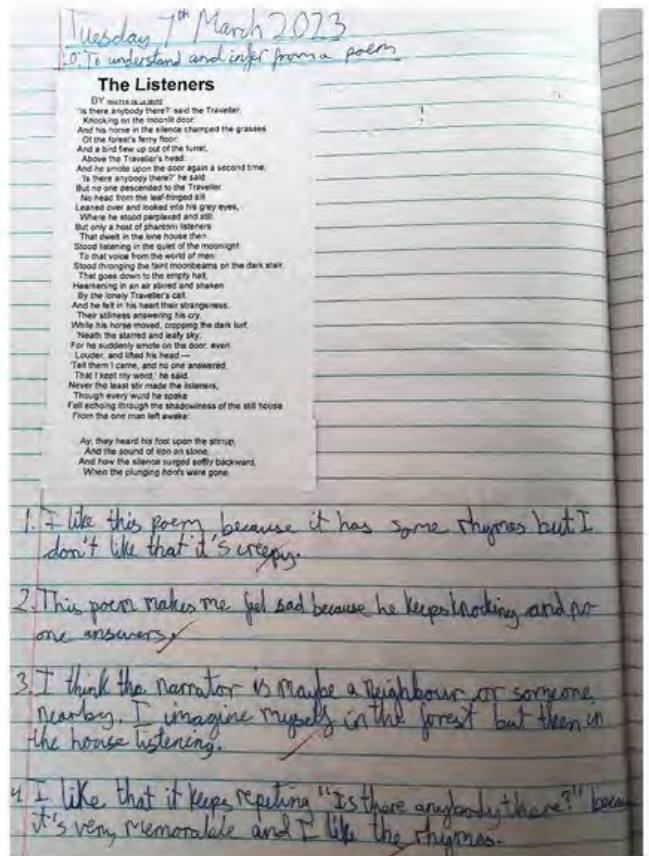 Tuesday 7th March 2023
L.O: To understand and infer from a poem
The Listeners
BY WALTER DE LA MARE
'Is there anybody there?' said the Traveller,
Knocking on the moonlit door;
And his horse in the silence champed the grasses
Of the forest's ferny floor:
And a bird flew up out of the turret,
Above the Traveller's head:
And he smote upon the door again a second time;
'Is there anybody there?' he said.
But no one descended to the Traveller;
No head from the leaf-fringed sill
Leaned over and looked into his grey eyes,
Where he stood perplexed and still.
But only a host of phantom listeners
That dwelt in the lone house then
Stood listening in the quiet of the moonlight
To that voice from the world of men:
Stood thronging the faint moonbeams on the dark stair,
That goes down to the empty hall,
Hearkening in an air stirred and shaken
By the lonely Traveller's call.
And he felt in his heart their strangeness,
Their stillness answering his cry,
While his horse moved, cropping the dark turf,
'Neath the starred and leafy sky;
For he suddenly smote on the door, even
Louder, and lifted his head:—
'Tell them I came, and no one answered,
That I kept my word,' he said.
Never the least stir made the listeners,
Though every word he spake
Fell echoing through the shadowiness of the still house
From the one man left awake:
Ay, they heard his foot upon the stirrup,
And the sound of iron on stone,
And how the silence surged softly backward,
When the plunging hoofs were gone.
1. I like this poem because it has some rhymes but I
don't like that it's creepy.
2. This poem makes me feel sad because he keeps knocking and no
one answers.
3. I think the narrator is maybe a neighbour or someone
nearby. I imagine myself in the forest but then in
the house listening.
4 I like that it keeps repeting "Is there anybody there?"
it's very memorable and I like the rhymes.